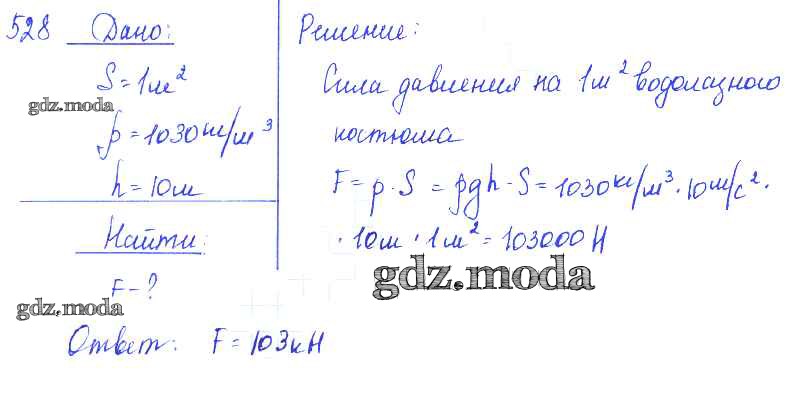 528 Дано:
S = 1м²
gdz.moda
ρ = 1030 кг/м³
h = 10м
Найти:
F - ?
gdz.moda
Решение:
Сила давления на 1м² водолазного
костюма
F = p · S = ρgh · S = 1030 кг/м³ · 10 м/с² ·
· 10м · 1м² = 103000 Н
gdz.moda
Ответ: F = 103 кН